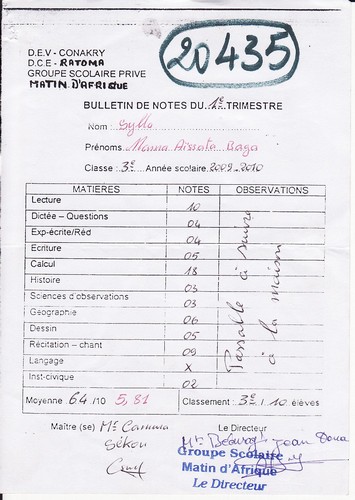 20435
D.E.V - CONAKRY
D.C.E - RATOMA
GROUPE SCOLAIRE PRIVE
MATIN D'AFRIQUE
BULLETIN DE NOTES DU 1e TRIMESTRE
Nom : Sylla
Prénoms Mama Aïssata Baga
Classe : 3e Année scolaire 2009-2010
MATIERES NOTES OBSERVATIONS
Lecture 10
Dictée – Questions 04
Exp-écrite/Réd 04
Ecriture 05
Calcul 18
Histoire 03
Sciences d'observations 03
Géographie 06
Dessin 05
Récitation – chant 09
Langage X
Inst-civique 02
Passable à suivre
à la maison
Moyenne 64 /10 5,81 Classement : 3e / 10 élèves
Maître (se) Mc Camara Le Directeur
Sékou
Mr Jean
Groupe Scolaire
Matin d'Afrique
Le Directeur